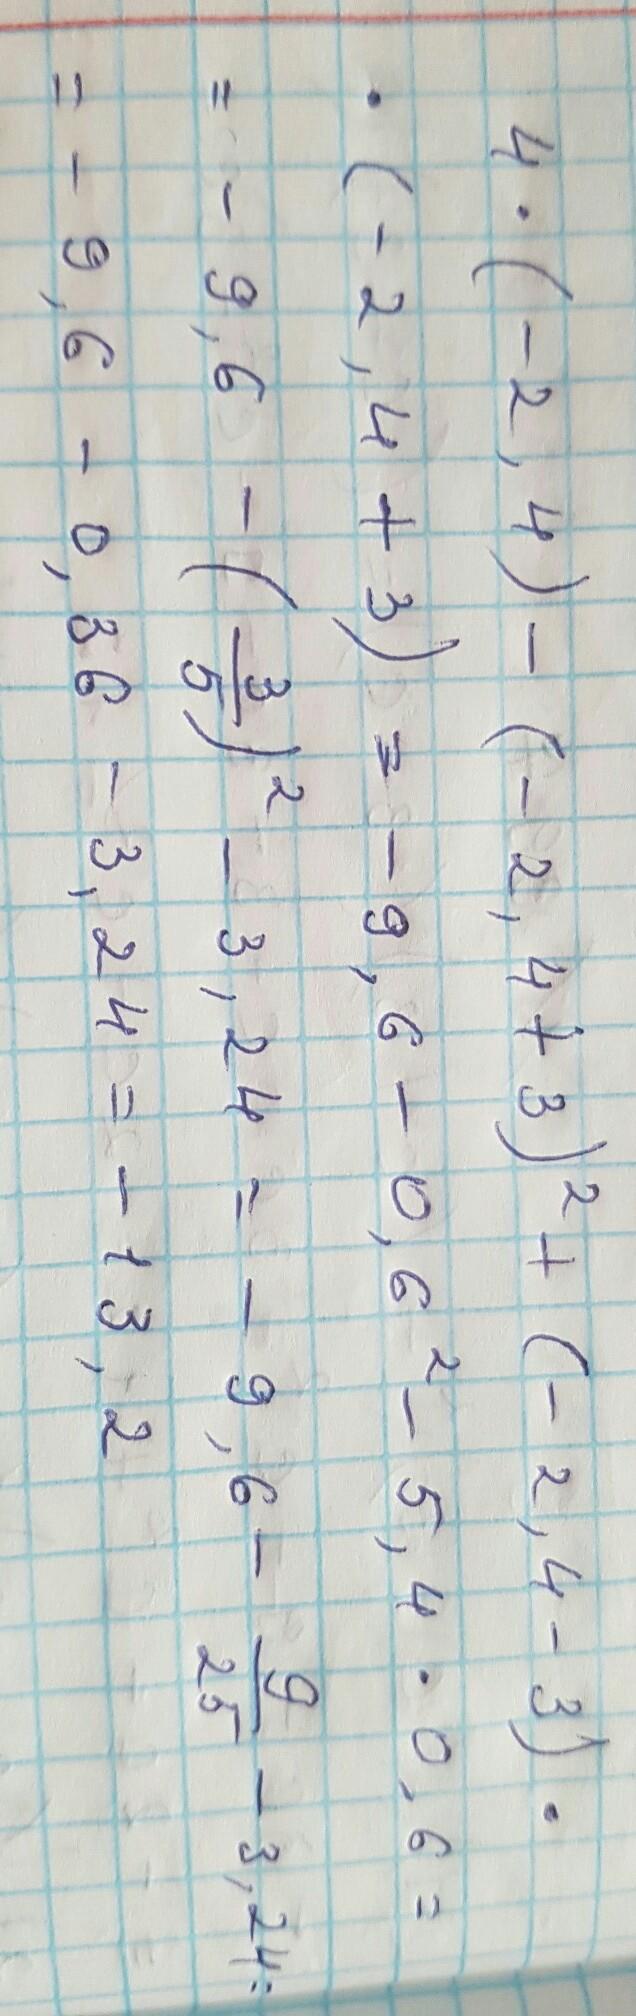 4 · (-2,4) - (-2,4+3)² + (-2,4-3) ·
· (-2,4+3) = -9,6 - 0,6² - 5,4 · 0,6 =
= -9,6 - (3/5)² - 3,24 = -9,6 - 9/25 - 3,24 =
= -9,6 - 0,36 - 3,24 = -13,2